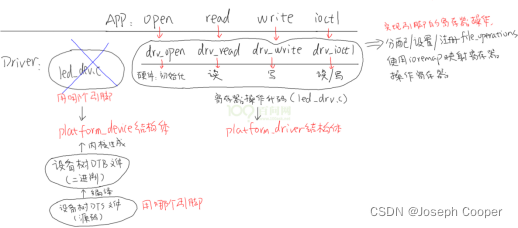 APP: open read write ioctl
Driver: drv_open drv_read drv_write drv_ioctl
硬件:初始化 读 写 读/写
led_dev.c
用哪个引脚
寄存器操作代码(led_drv.c)
platform_device结构体
platform_driver结构体
内核生成
设备树DTB文件
(二进制)
编译
设备树DTS文件
(源码)
用哪个引脚
实现引脚的寄存器操作.
分配/设置/注册file_operations
使用ioremap映射寄存器
操作寄存器
CSDN @Joseph Cooper